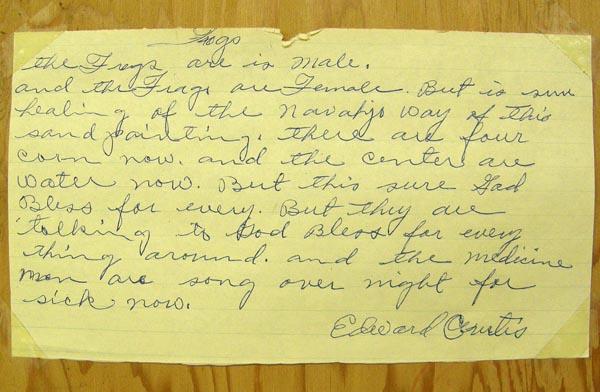 Frogs
the Frogs are is male.
and the Frags are Female. But is sure
healing of the Navahjo way of this
sandpainting. there are four
corn now. and the center are
water now. But this sure God
Bless for every. But they are
talking to God Bless for every
thing around. and the medicine
man are song over night for
sick now.
Edward Curtis